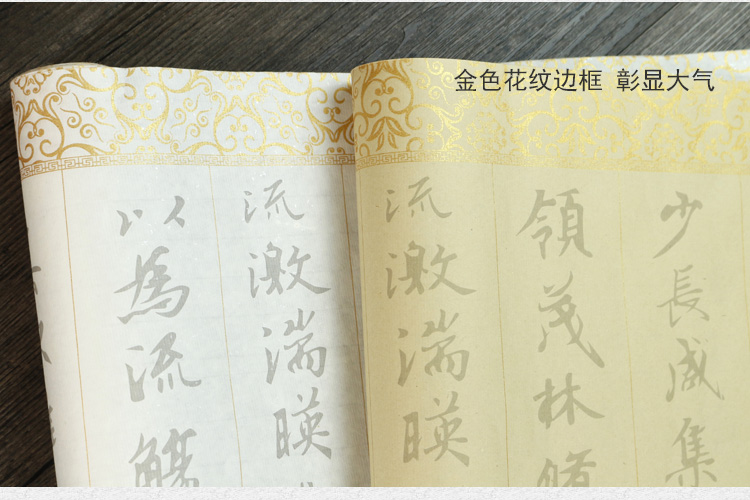 金色花纹边框 彰显大气
少長咸集
領茂林修
流激湍暎
流激湍暎
以為流觴